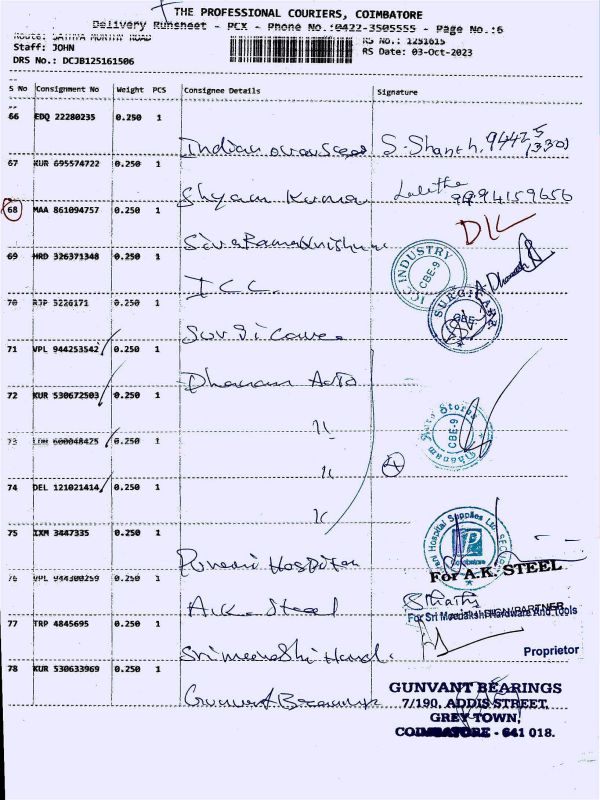 THE PROFESSIONAL COURIERS, COIMBATORE
Delivery Runsheet - PCX - Phone No.:0422-3505555 - Page No.:6
Route: SATHYA MORTHY ROAD
RS No.: 1251615
Staff: JOHN
RS Date: 03-Oct-2023
DRS No.: DCJB125161506
S No Consignment No Weight PCS Consignee Details Signature
66 EDQ 22280235 0.250 1
Indian overseas S. Shanthi, 94425
67 KUR 695574722 0.250 1
Shyam Kumar Lalitha
9994159656
68 MAA 861094757 0.250 1
SivaRamakrishna
69 HRD 326371348 0.250 1
I C C
INDUSTRY
CBE-9
70 RJP 5226171 0.250 1
Surgicare
SURGICARE
CBE
71 VPL 944253542 0.250 1
Dhanam Auto
72 KUR 530672503 0.250 1
"
Auto Stores
CBE-9
Dhanam
73 LDH 600048425 0.250 1
"
74 DEL 121021414 0.250 1
"
75 IXM 3447335 0.250 1
Hospital
Hospital Supplies
Coimbatore
For A.K. STEEL
76 VPL 944300259 0.250 1
A.K. Steel
PARTNER
For Sri Meenakshi Hardware And Tools
77 TRP 4845695 0.250 1
Sri Meenakshi Hard
Proprietor
78 KUR 530633969 0.250 1
Gunvant Bearings
GUNVANT BEARINGS
7/190, ADDIS STREET,
GREY TOWN,
COIMBATORE - 641 018.